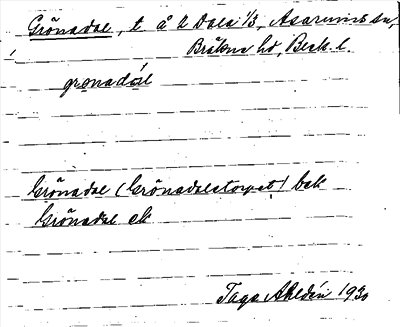 Grönadal, t å 2 Dala 1/3, Asarums sn,
Bräkne hd, Blek. l.
gronadál
Grönadal (Grönadalstorpet) bak
Grönadal ek
Tage Ahldén 1930